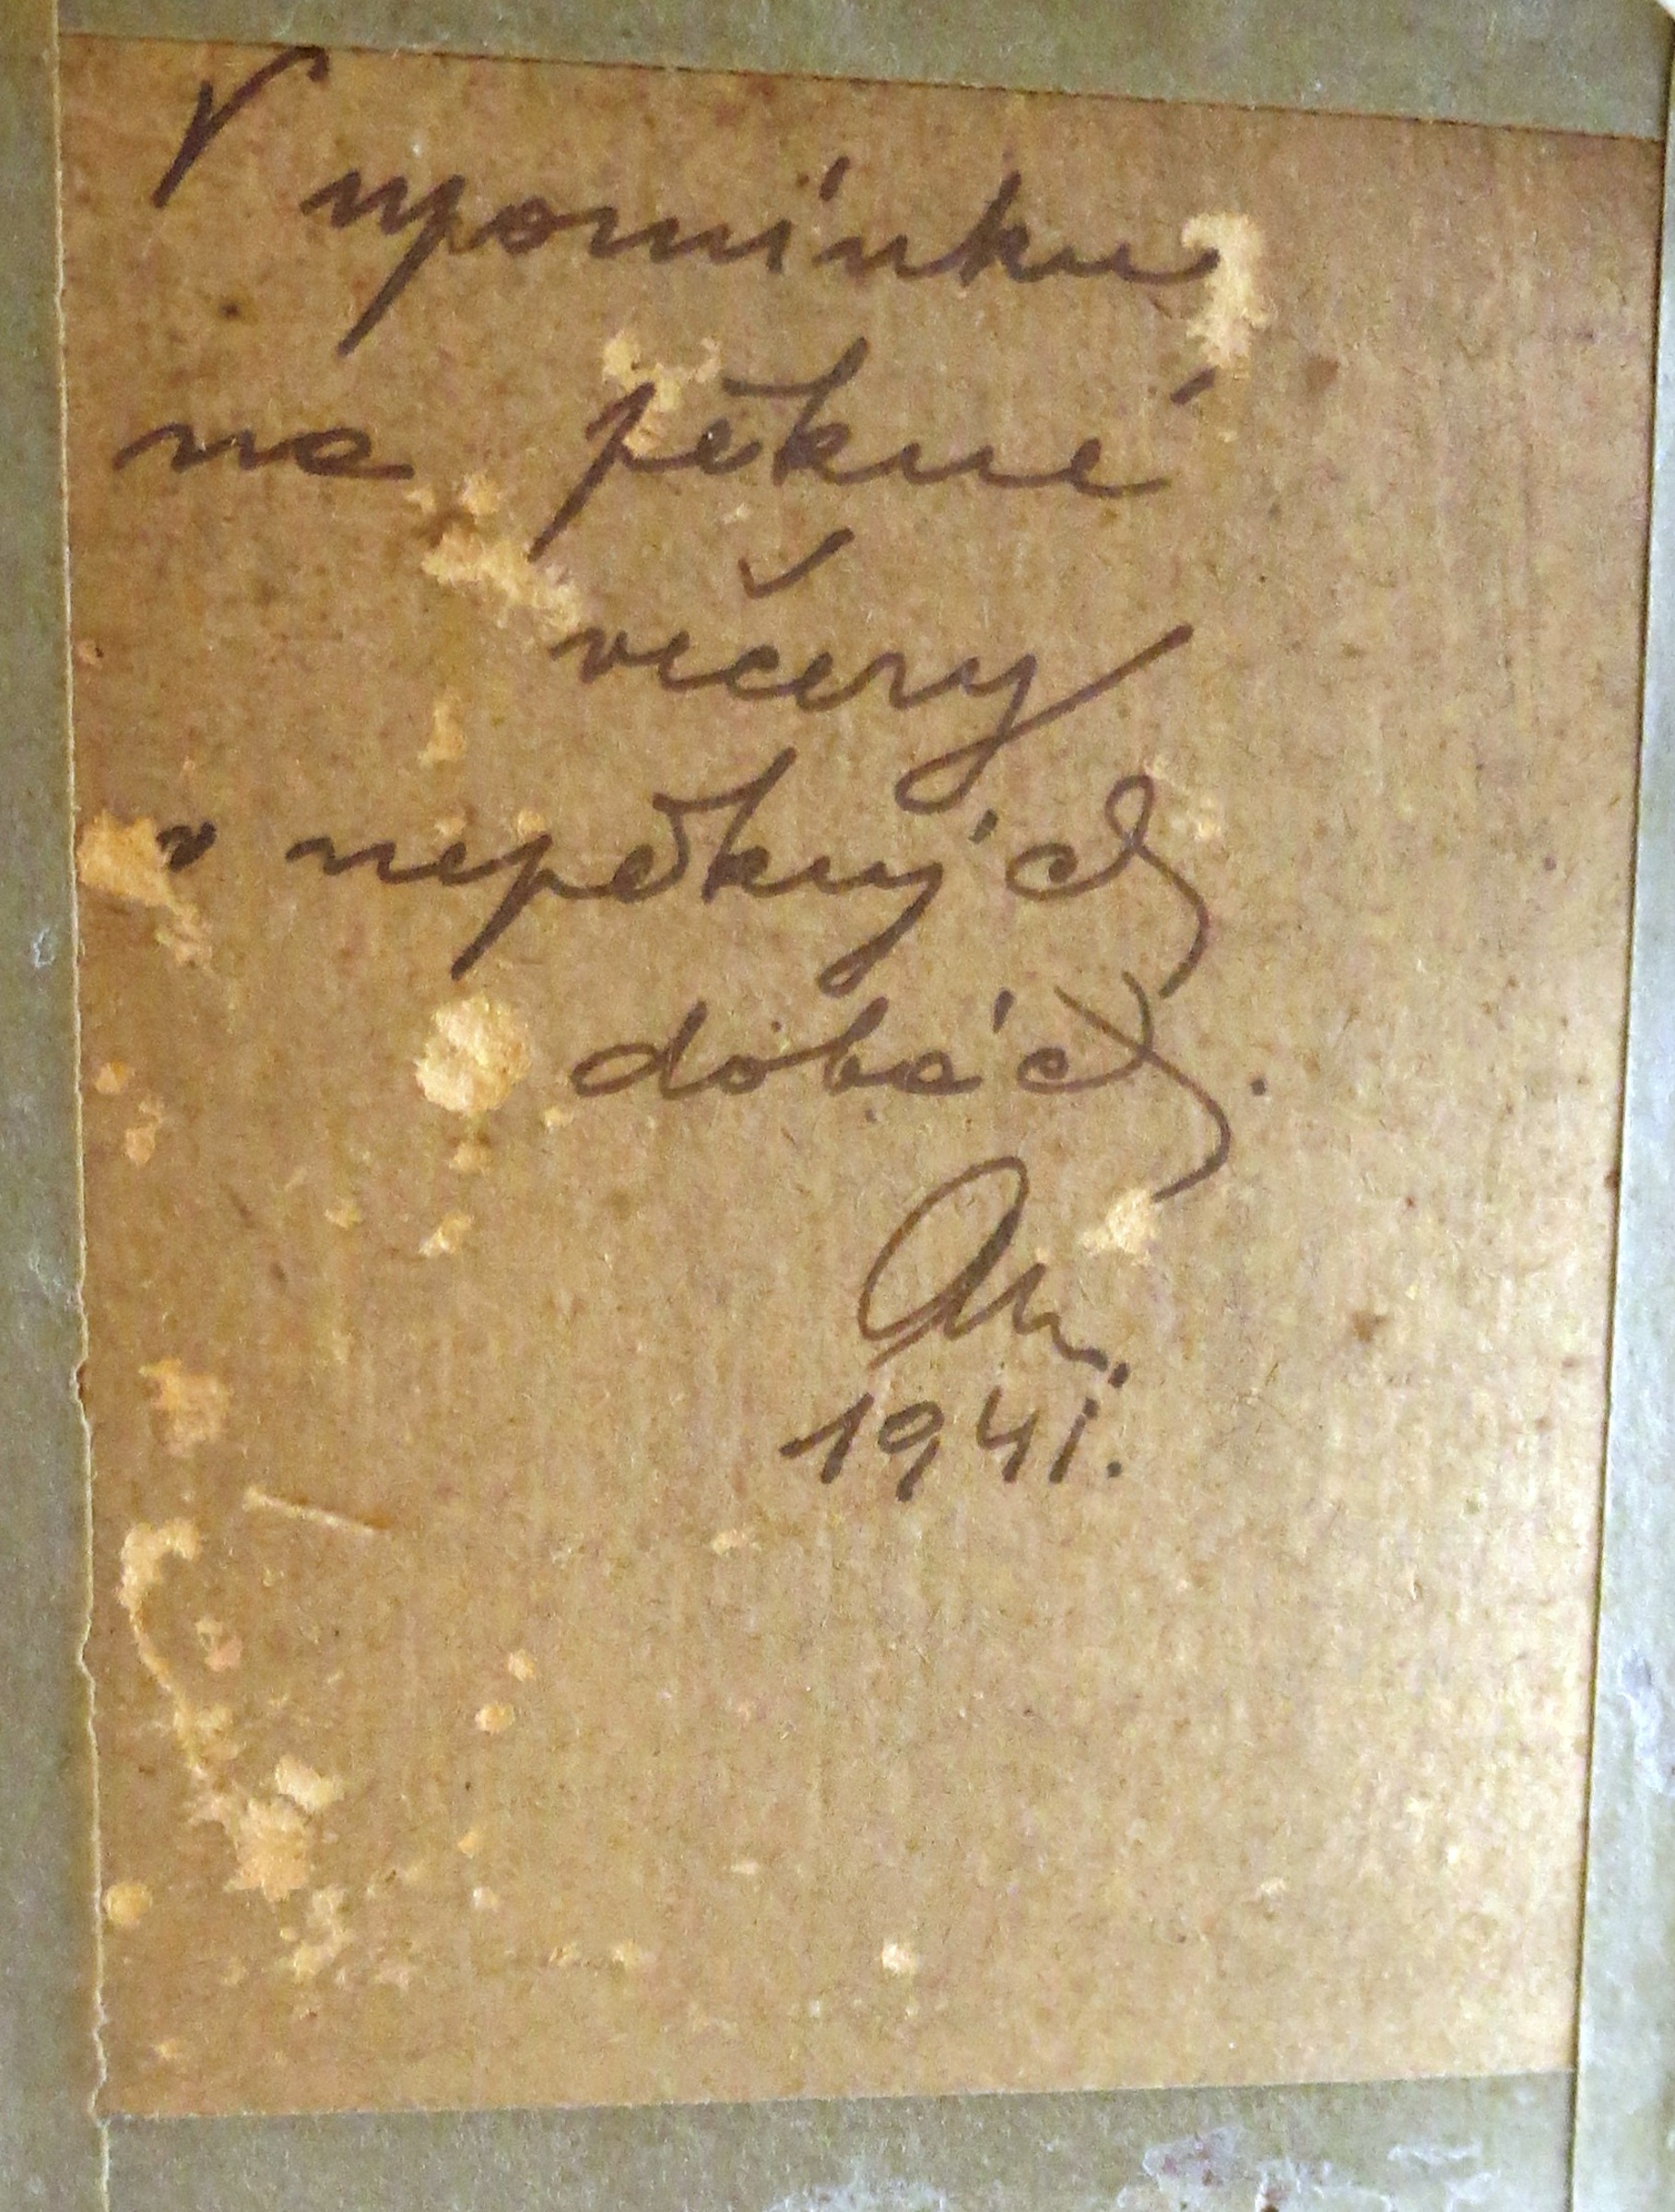 V upomínku
na pěkné
večery
v nepěkných
dobách.
1941.